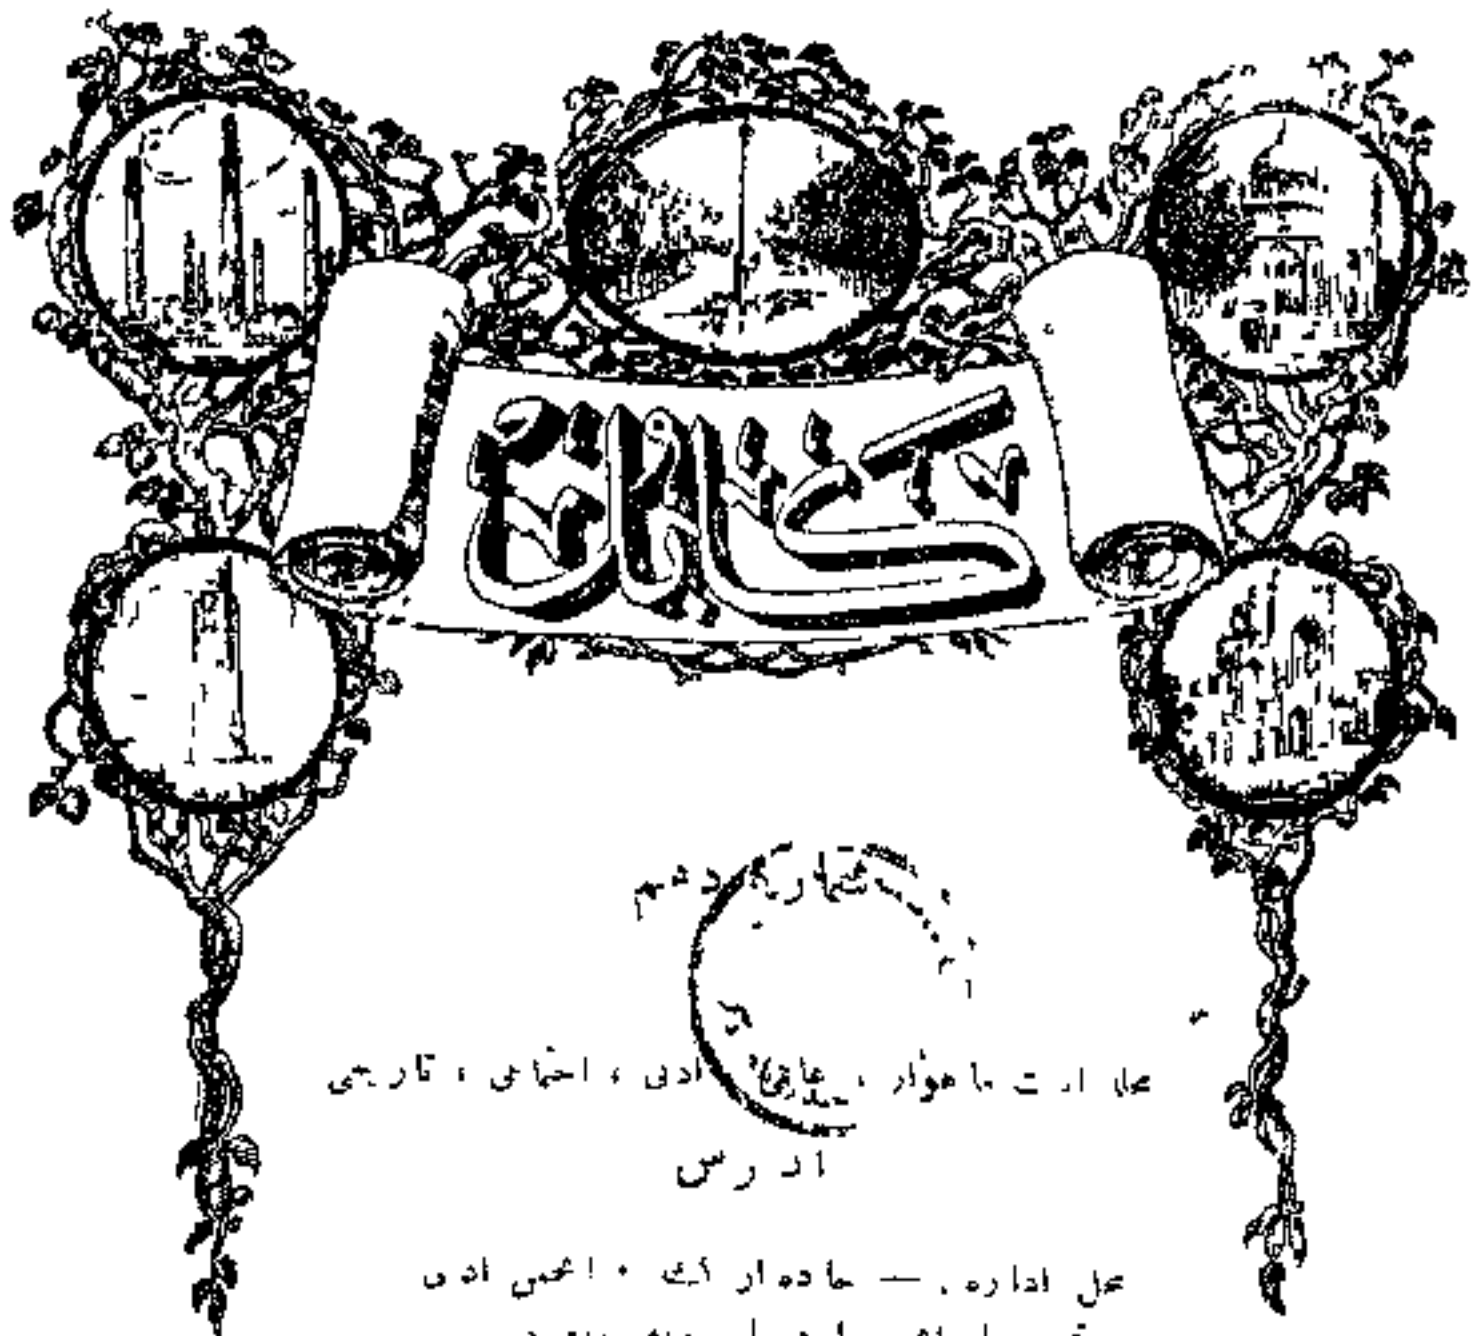 کابل
شماره دهم
مجله ایست ماهوار ، علمی ، ادبی ، اجتماعی ، تاریخی
ادرس
محل اداره — جاده ارگ ، انجمن ادبی